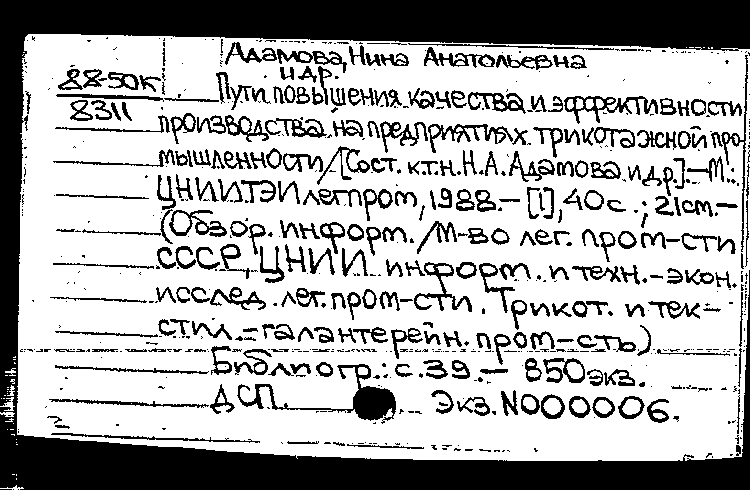 Адамова, Нина Анатольевна
и др.
88-50к
8311
Пути повышения качества и эффективности
производства на предприятиях трикотажной про-
мышленности/[Сост. к.т.н. Н.А. Адамова и др.].-М.:
ЦНИИТЭИлегпром, 1988.- [1], 40с.; 21см.-
(Обзор. информ./М-во лег. пром-сти
СССР, ЦНИИ информ. и техн.-экон.
исслед. лег. пром-сти. Трикот. и тек-
стил.-галантерейн. пром-сть)
Библиогр.: с.39.- 850экз.
ДСП. Экз. N000006.